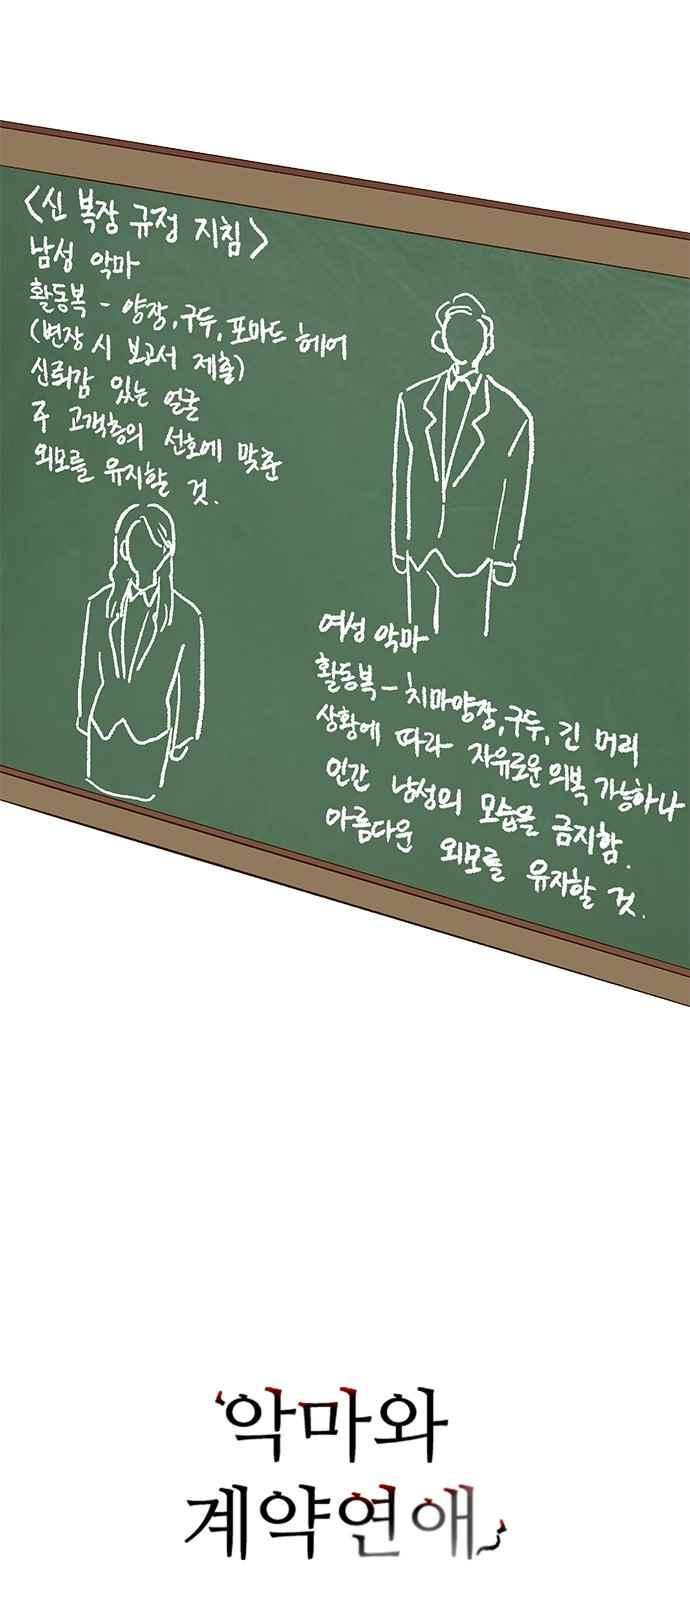 <신 복장 규정 지침>
남성 악마
활동복 - 양장, 구두, 포마드 헤어
(변장 시 보고서 제출)
신뢰감 있는 얼굴
주 고객층의 선호에 맞춘
외모를 유지할 것.
여성 악마
활동복 - 치마양장, 구두, 긴 머리
상황에 따라 자유로운 의복 가능하나
인간 남성의 모습을 금지함.
아름다운 외모를 유지할 것.
악마와
계약연애